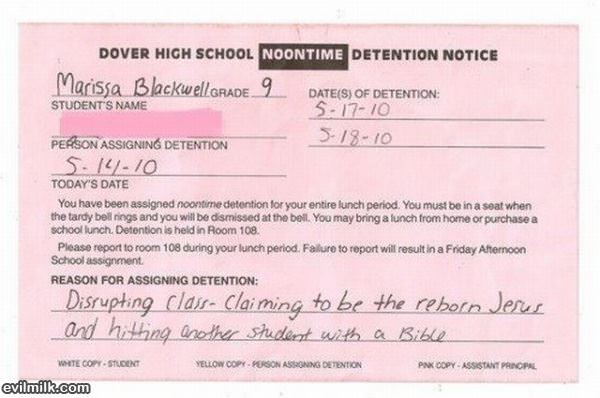 DOVER HIGH SCHOOL NOONTIME DETENTION NOTICE
Marissa Blackwell GRADE 9
STUDENT'S NAME
DATE(S) OF DETENTION:
5-17-10
5-18-10
PERSON ASSIGNING DETENTION
5-14-10
TODAY'S DATE
You have been assigned noontime detention for your entire lunch period. You must be in a seat when
the tardy bell rings and you will be dismissed at the bell. You may bring a lunch from home or purchase a
school lunch. Detention is held in Room 108.
Please report to room 108 during your lunch period. Failure to report will result in a Friday Afternoon
School assignment.
REASON FOR ASSIGNING DETENTION:
Disrupting class- Claiming to be the reborn Jesus
and hitting another student with a Bible
WHITE COPY - STUDENT YELLOW COPY - PERSON ASSIGNING DETENTION PINK COPY - ASSISTANT PRINCIPAL
evilmilk.com